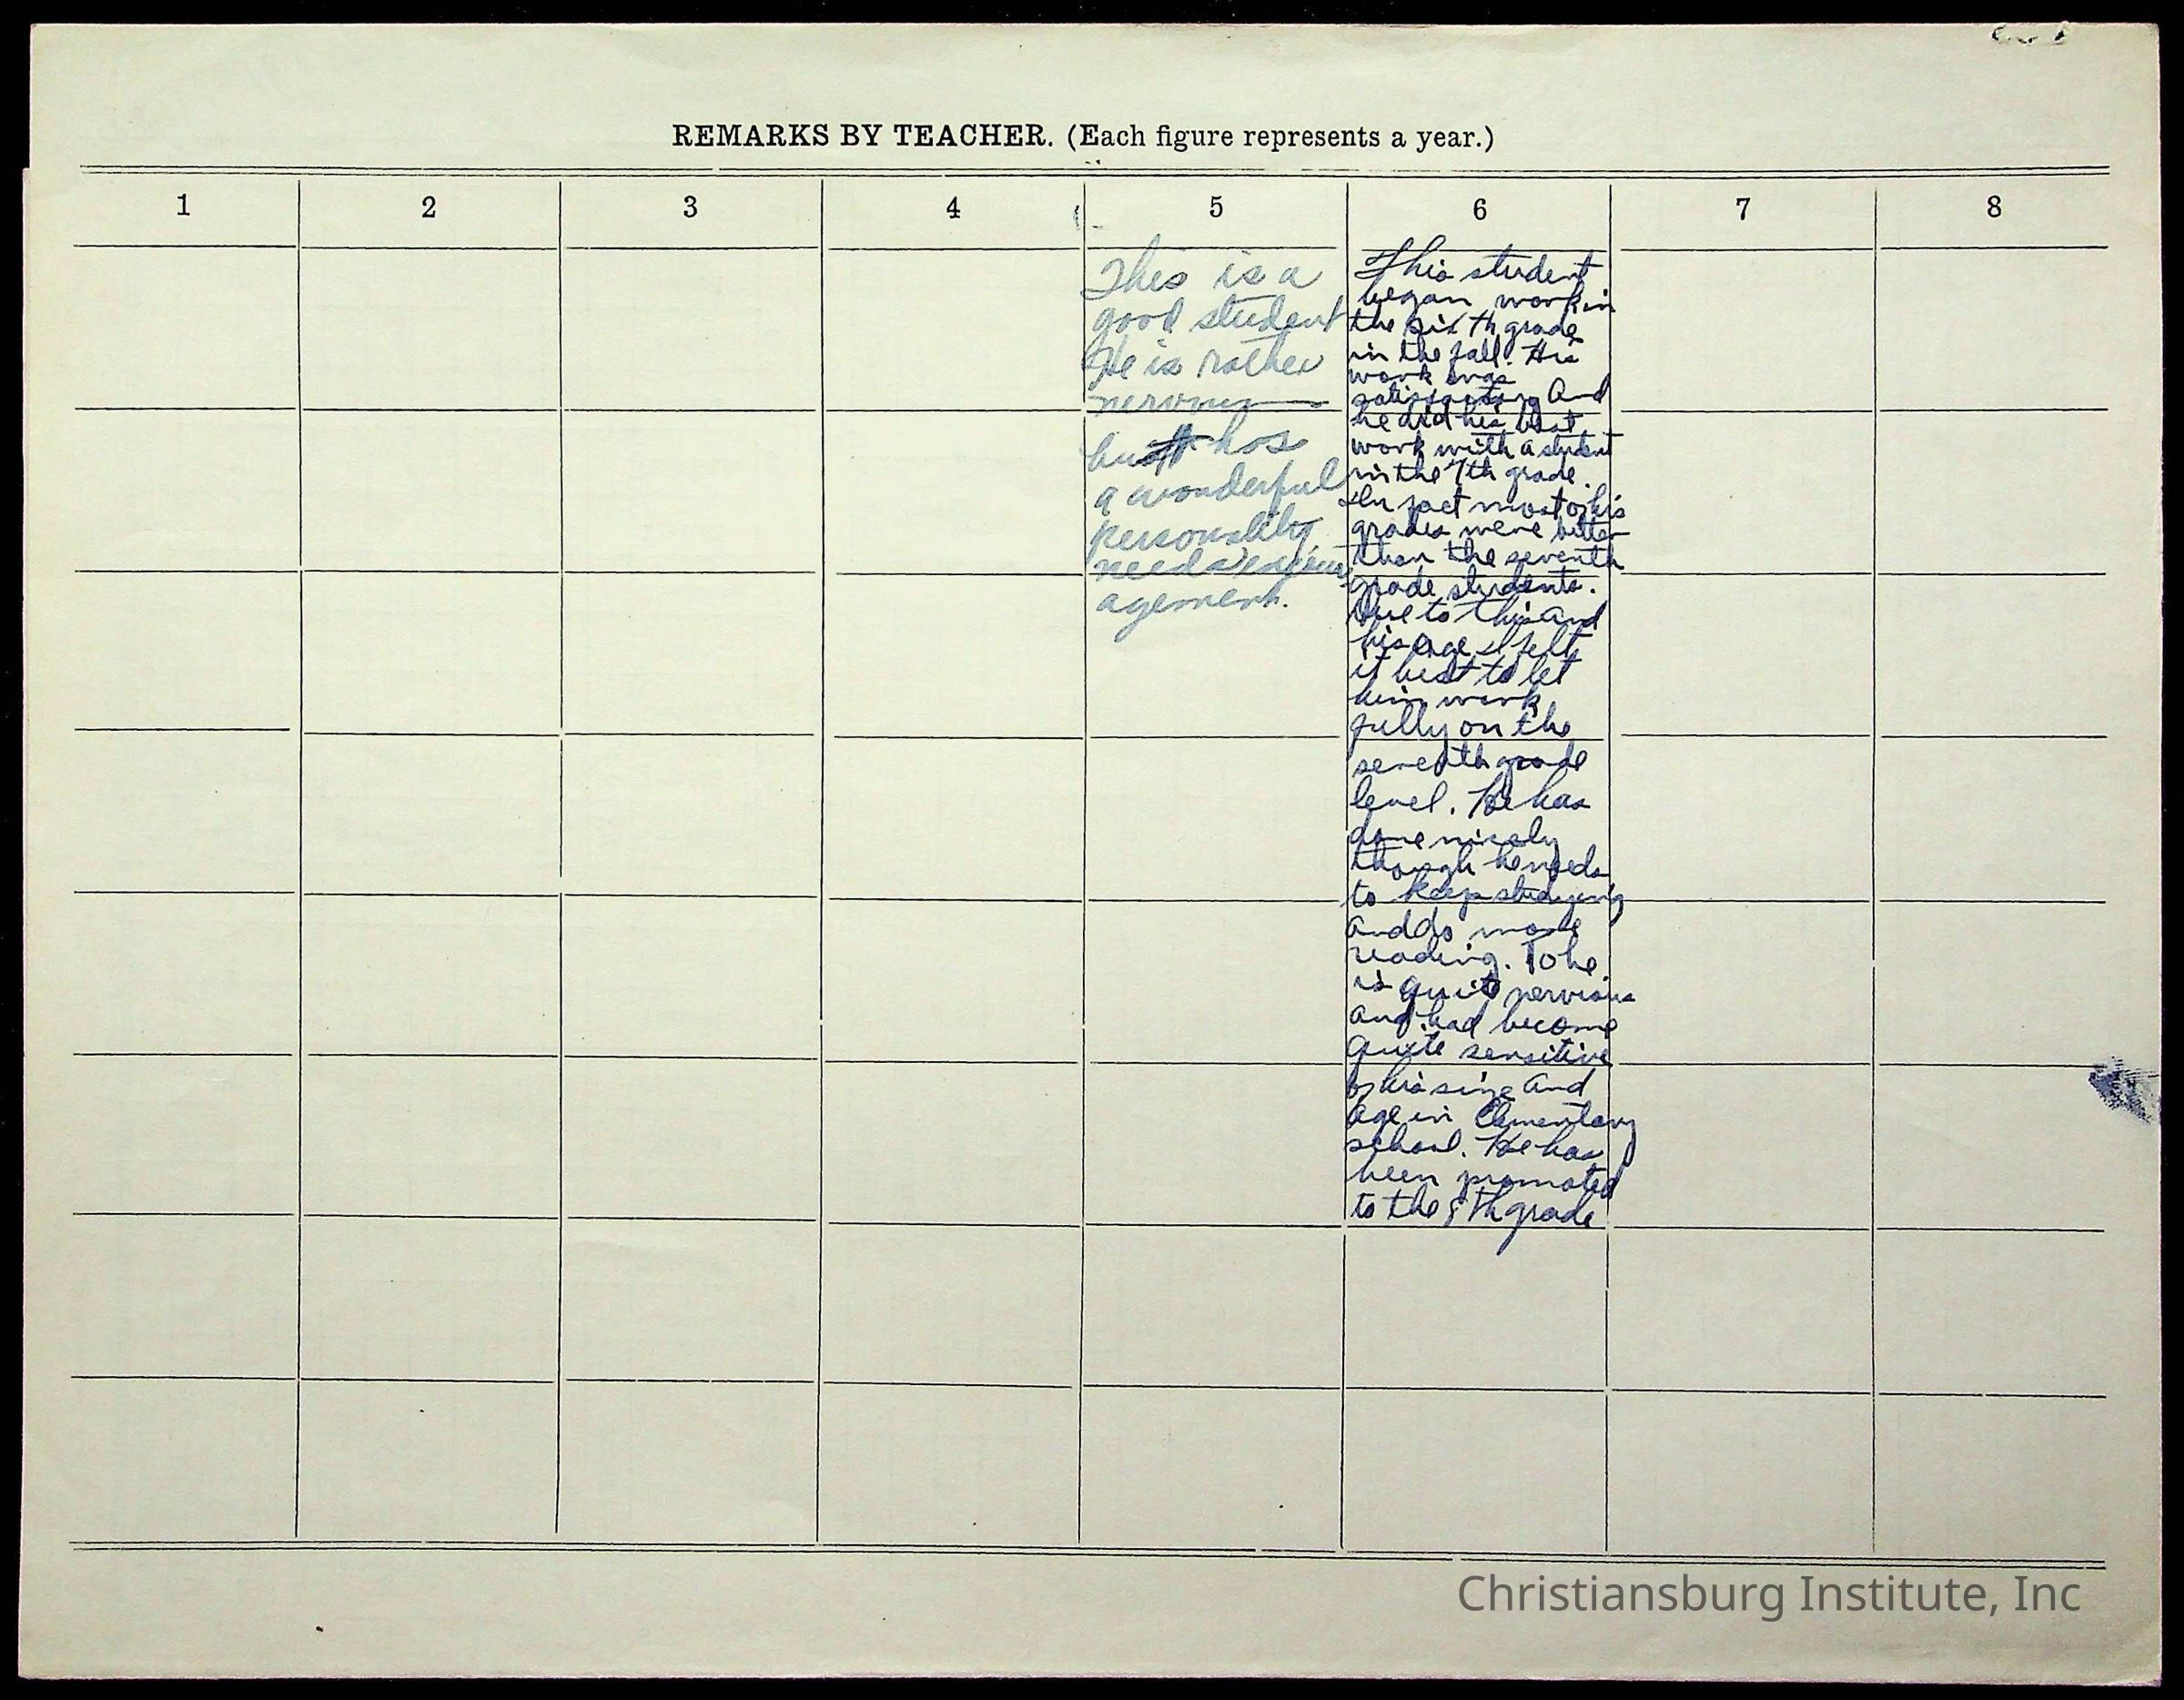 REMARKS BY TEACHER. (Each figure represents a year.)
1 2 3 4 5 6 7 8
This is a
good student
He is rather
nervous
but has
a wonderful
personality,
needs encour
agement.
This student
began work in
the sixth grade
in the fall. His
work was
satisfactory And
he did his best
work with a student
in the 7th grade.
In fact most of his
grades were better
than the seventh
grade students.
Due to this and
his age I felt
it best to let
him work
fully on the
seventh grade
level. He has
done nicely
though he needs
to keep studying
and do more
reading. To he
is quite nervious
and had become
quite sensitive
of his size and
age in Elementary
school. He has
been promoted
to the 8th grade
Christiansburg Institute, Inc